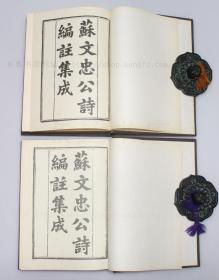 蘇文忠公詩
編註集成
蘇文忠公詩
編註集成